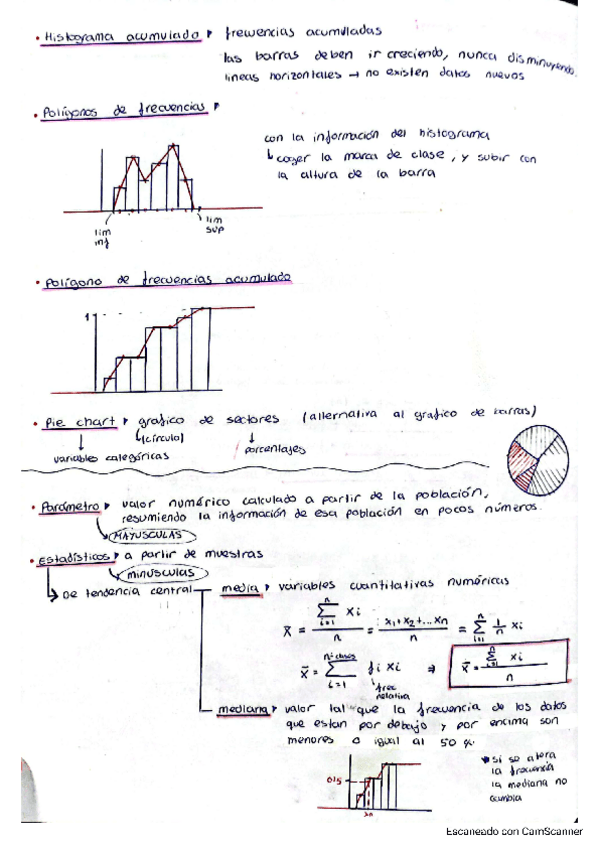 • Histograma acumulado ▸ frecuencias acumuladas
las barras deben ir creciendo, nunca disminuyendo.
lineas horizontales → no existen datos nuevos
• Polígonos de frecuencias ▸
con la información del histograma
↳ coger la marca de clase, y subir con
la altura de la barra
lim inf
lim sup
• Polígono de frecuencias acumulado
1
• Pie chart ▸ grafico de sectores (alternativa al grafico de barras)
(círculo)
variables categóricas
porcentajes
• Parámetro ▸ valor numérico calculado a partir de la población,
resumiendo la información de esa población en pocos números.
MAYUSCULAS
• estadísticos ▸ a partir de muestras
minusculas
De tendencia central
media ▸ variables cuantitativas numéricas
x̄ = ∑ᵢ₌₁ⁿ xi / n = x₁+x₂+...xn / n = ∑ᵢ₌₁ⁿ 1/n xi
x̄ = ∑ᵢ₌₁ⁿ º ᶜˡᵃˢᵉˢ fi xi ⇒ x̄ = ∑ᵢ₌₁ⁿ xi / n
frec
relativa
mediana ▸ valor tal que la frecuencia de los datos
que estan por debajo y por encima son
menores o igual al 50 %.
0,5
* si se altera
la frecuencia
la mediana no
cambia
Escaneado con CamScanner